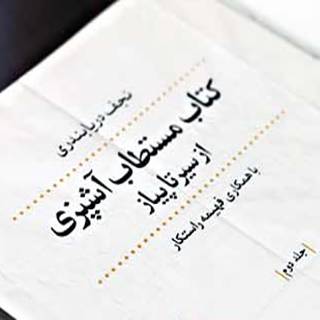 نجف دریابندری
کتاب مستطاب آشپزی
از سیر تا پیاز
با همکاری فهیمه راستکار
جلد دوم